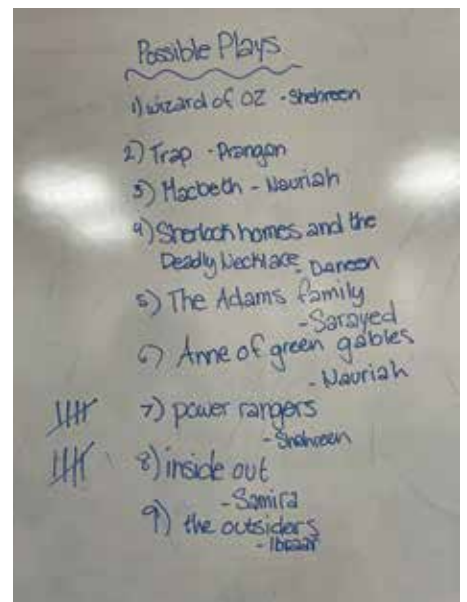 Possible Plays
1) wizard of OZ - Shehreen
2) Trap - Prangon
3) Macbeth - Nauriah
4) Sherlock homes and the
Deadly Necklace - Daneen
5) The Adams family
- Sarayed
6) Anne of green gables
- Nauriah
7) power rangers
- Shehreen
8) inside out
- Samira
9) the outsiders